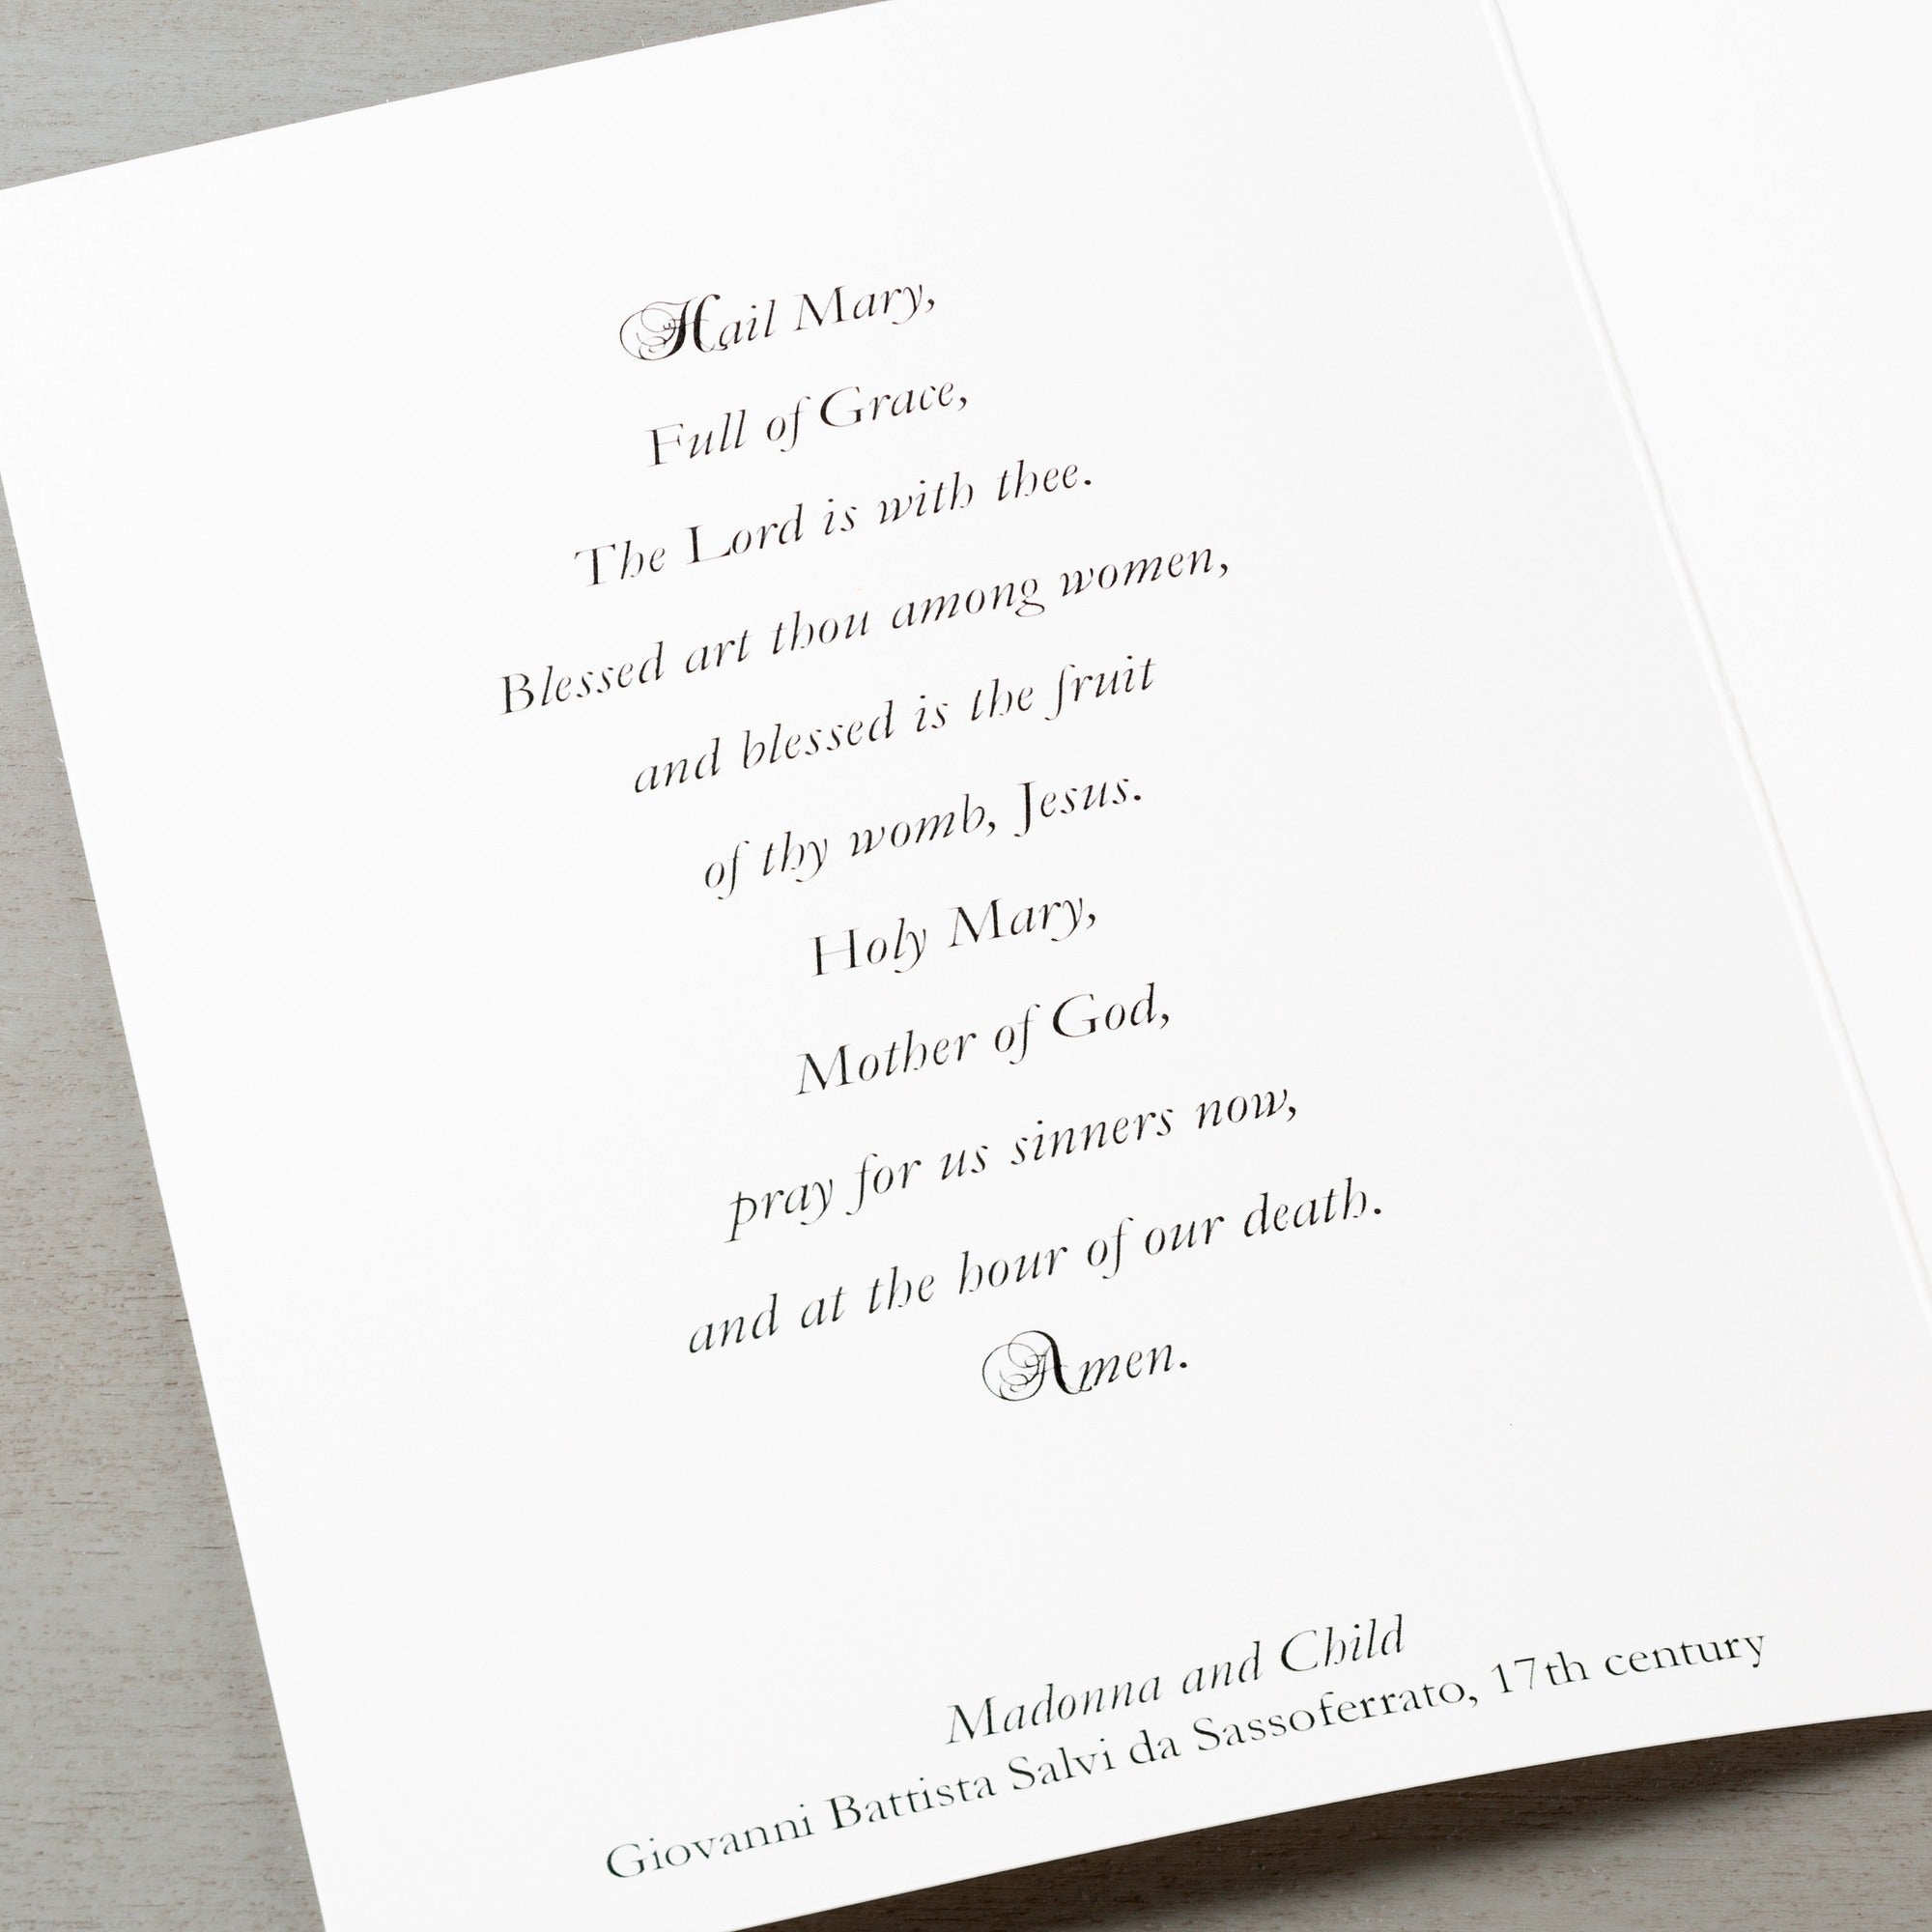 Hail Mary,
Full of Grace,
The Lord is with thee.
Blessed art thou among women,
and blessed is the fruit
of thy womb, Jesus.
Holy Mary,
Mother of God,
pray for us sinners now,
and at the hour of our death.
Amen.
Madonna and Child
Giovanni Battista Salvi da Sassoferrato, 17th century